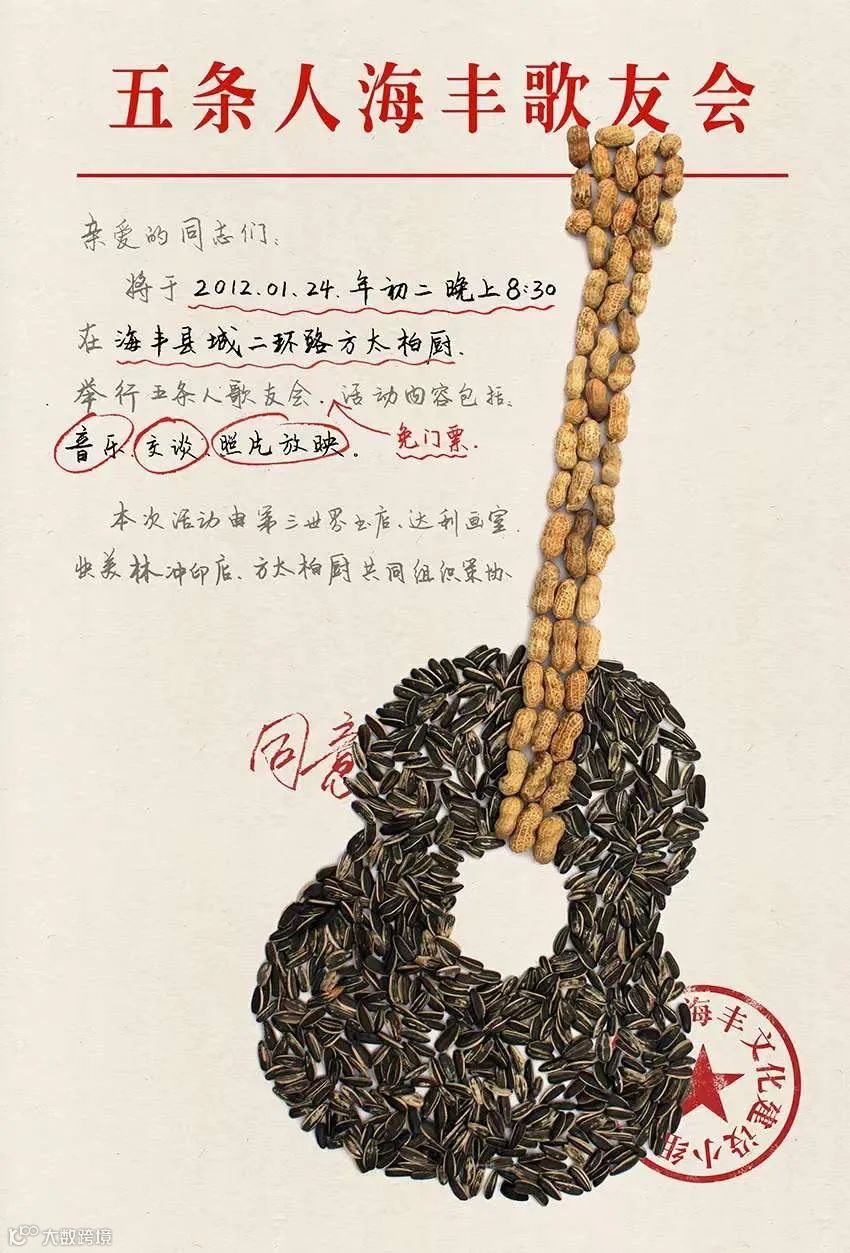 五条人海丰歌友会
亲爱的同志们:
将于 2012.01.24. 年初二晚上 8:30
在 海丰县城二环路方太柏厨.
举行五条人歌友会. 活动内容包括:
音乐. 交谈. 照片放映.
免门票.
本次活动由第三世界书店、达利画室.
快美林冲印店、方太柏厨共同组织策协
同意
海丰文化建设小组
大数跨境